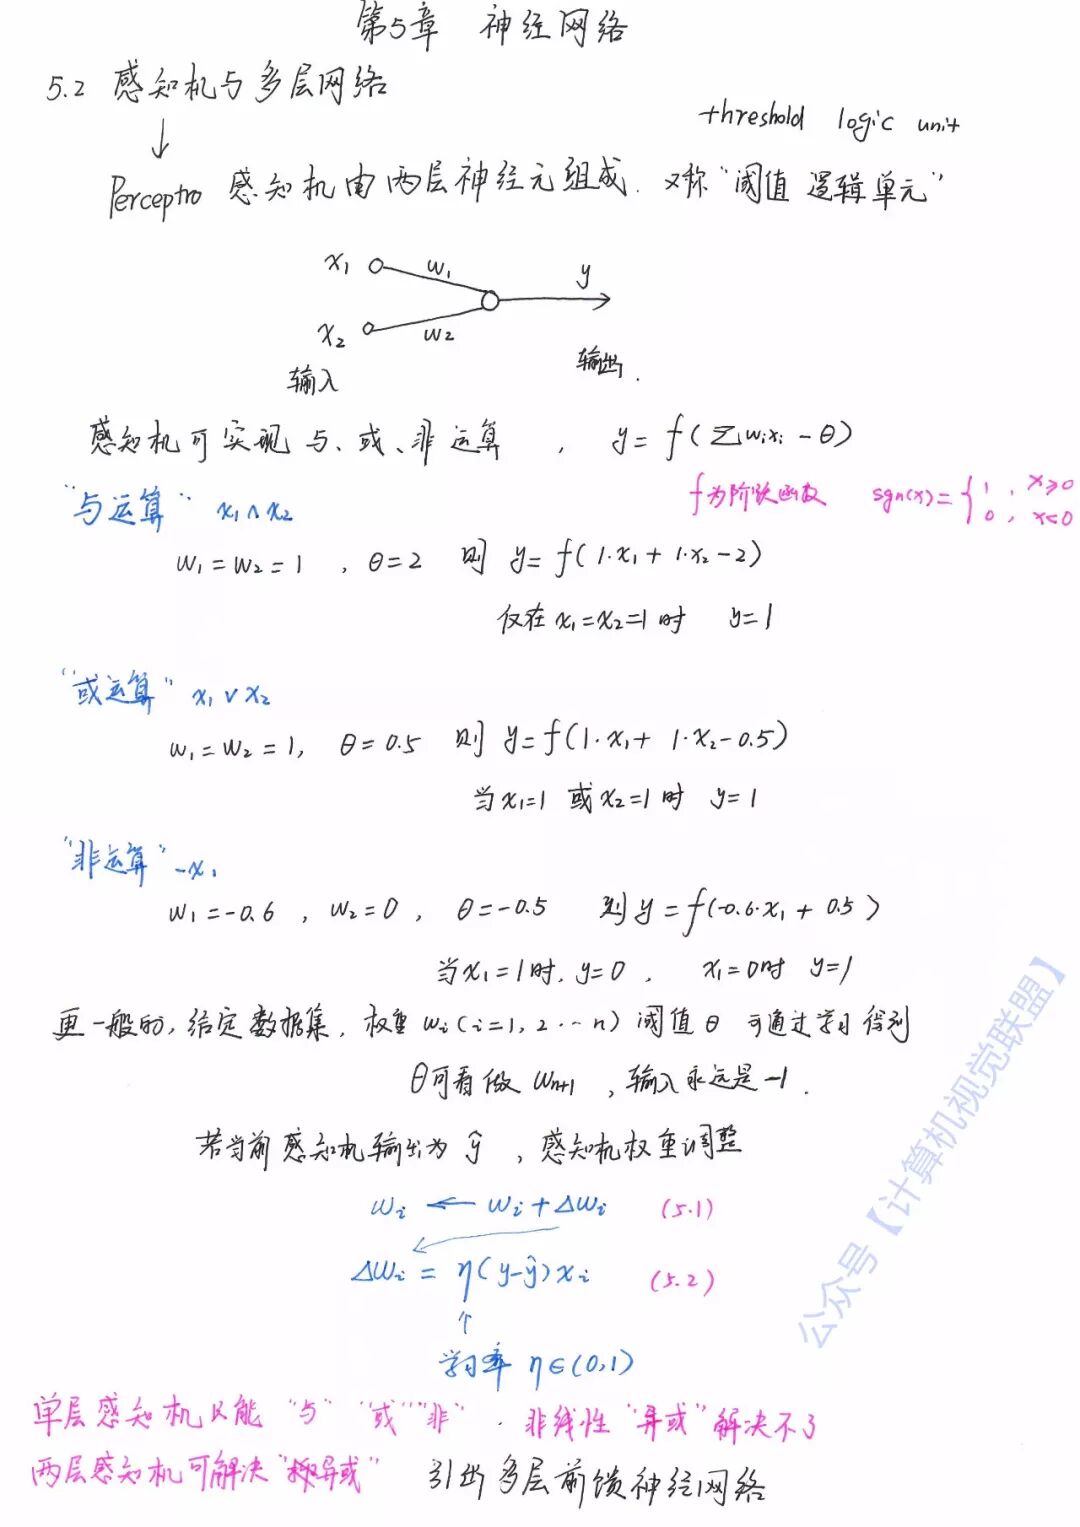 第5章 神经网络
5.2 感知机与多层网络
threshold logic unit
Perceptro 感知机由两层神经元组成. 又称"阈值逻辑单元"
x₁ w₁ y
x₂ w₂
输入 输出.
感知机可实现与、或、非运算, y = f(Σwᵢxᵢ - θ)
f为阶跃函数 sgn(x) = { 1, x≥0
0, x<0
"与运算" x₁∧x₂
w₁ = w₂ = 1, θ=2 则 y = f(1·x₁ + 1·x₂ - 2)
仅在 x₁=x₂=1 时 y=1
"或运算" x₁∨x₂
w₁ = w₂ = 1, θ = 0.5 则 y = f(1·x₁ + 1·x₂ - 0.5)
当x₁=1 或x₂=1 时 y=1
"非运算" -x₁
w₁ = -0.6, w₂=0, θ=-0.5 则 y = f(-0.6·x₁ + 0.5)
当x₁=1时, y=0, x₁=0时 y=1
更一般的, 给定数据集, 权重 wᵢ(i=1,2…n) 阈值θ 可通过学习得到
θ可看做 wₙ₊₁, 输入永远是-1.
若当前感知机输出为 ŷ, 感知机权重调整
wᵢ ← wᵢ + Δwᵢ (5.1)
Δwᵢ = η(y-ŷ)xᵢ (5.2)
学习率 η∈(0,1)
单层感知机只能 "与" "或" "非". 非线性 "异或" 解决不了
两层感知机可解决 "异或" 引出多层前馈神经网络
公众号【计算机视觉联盟】